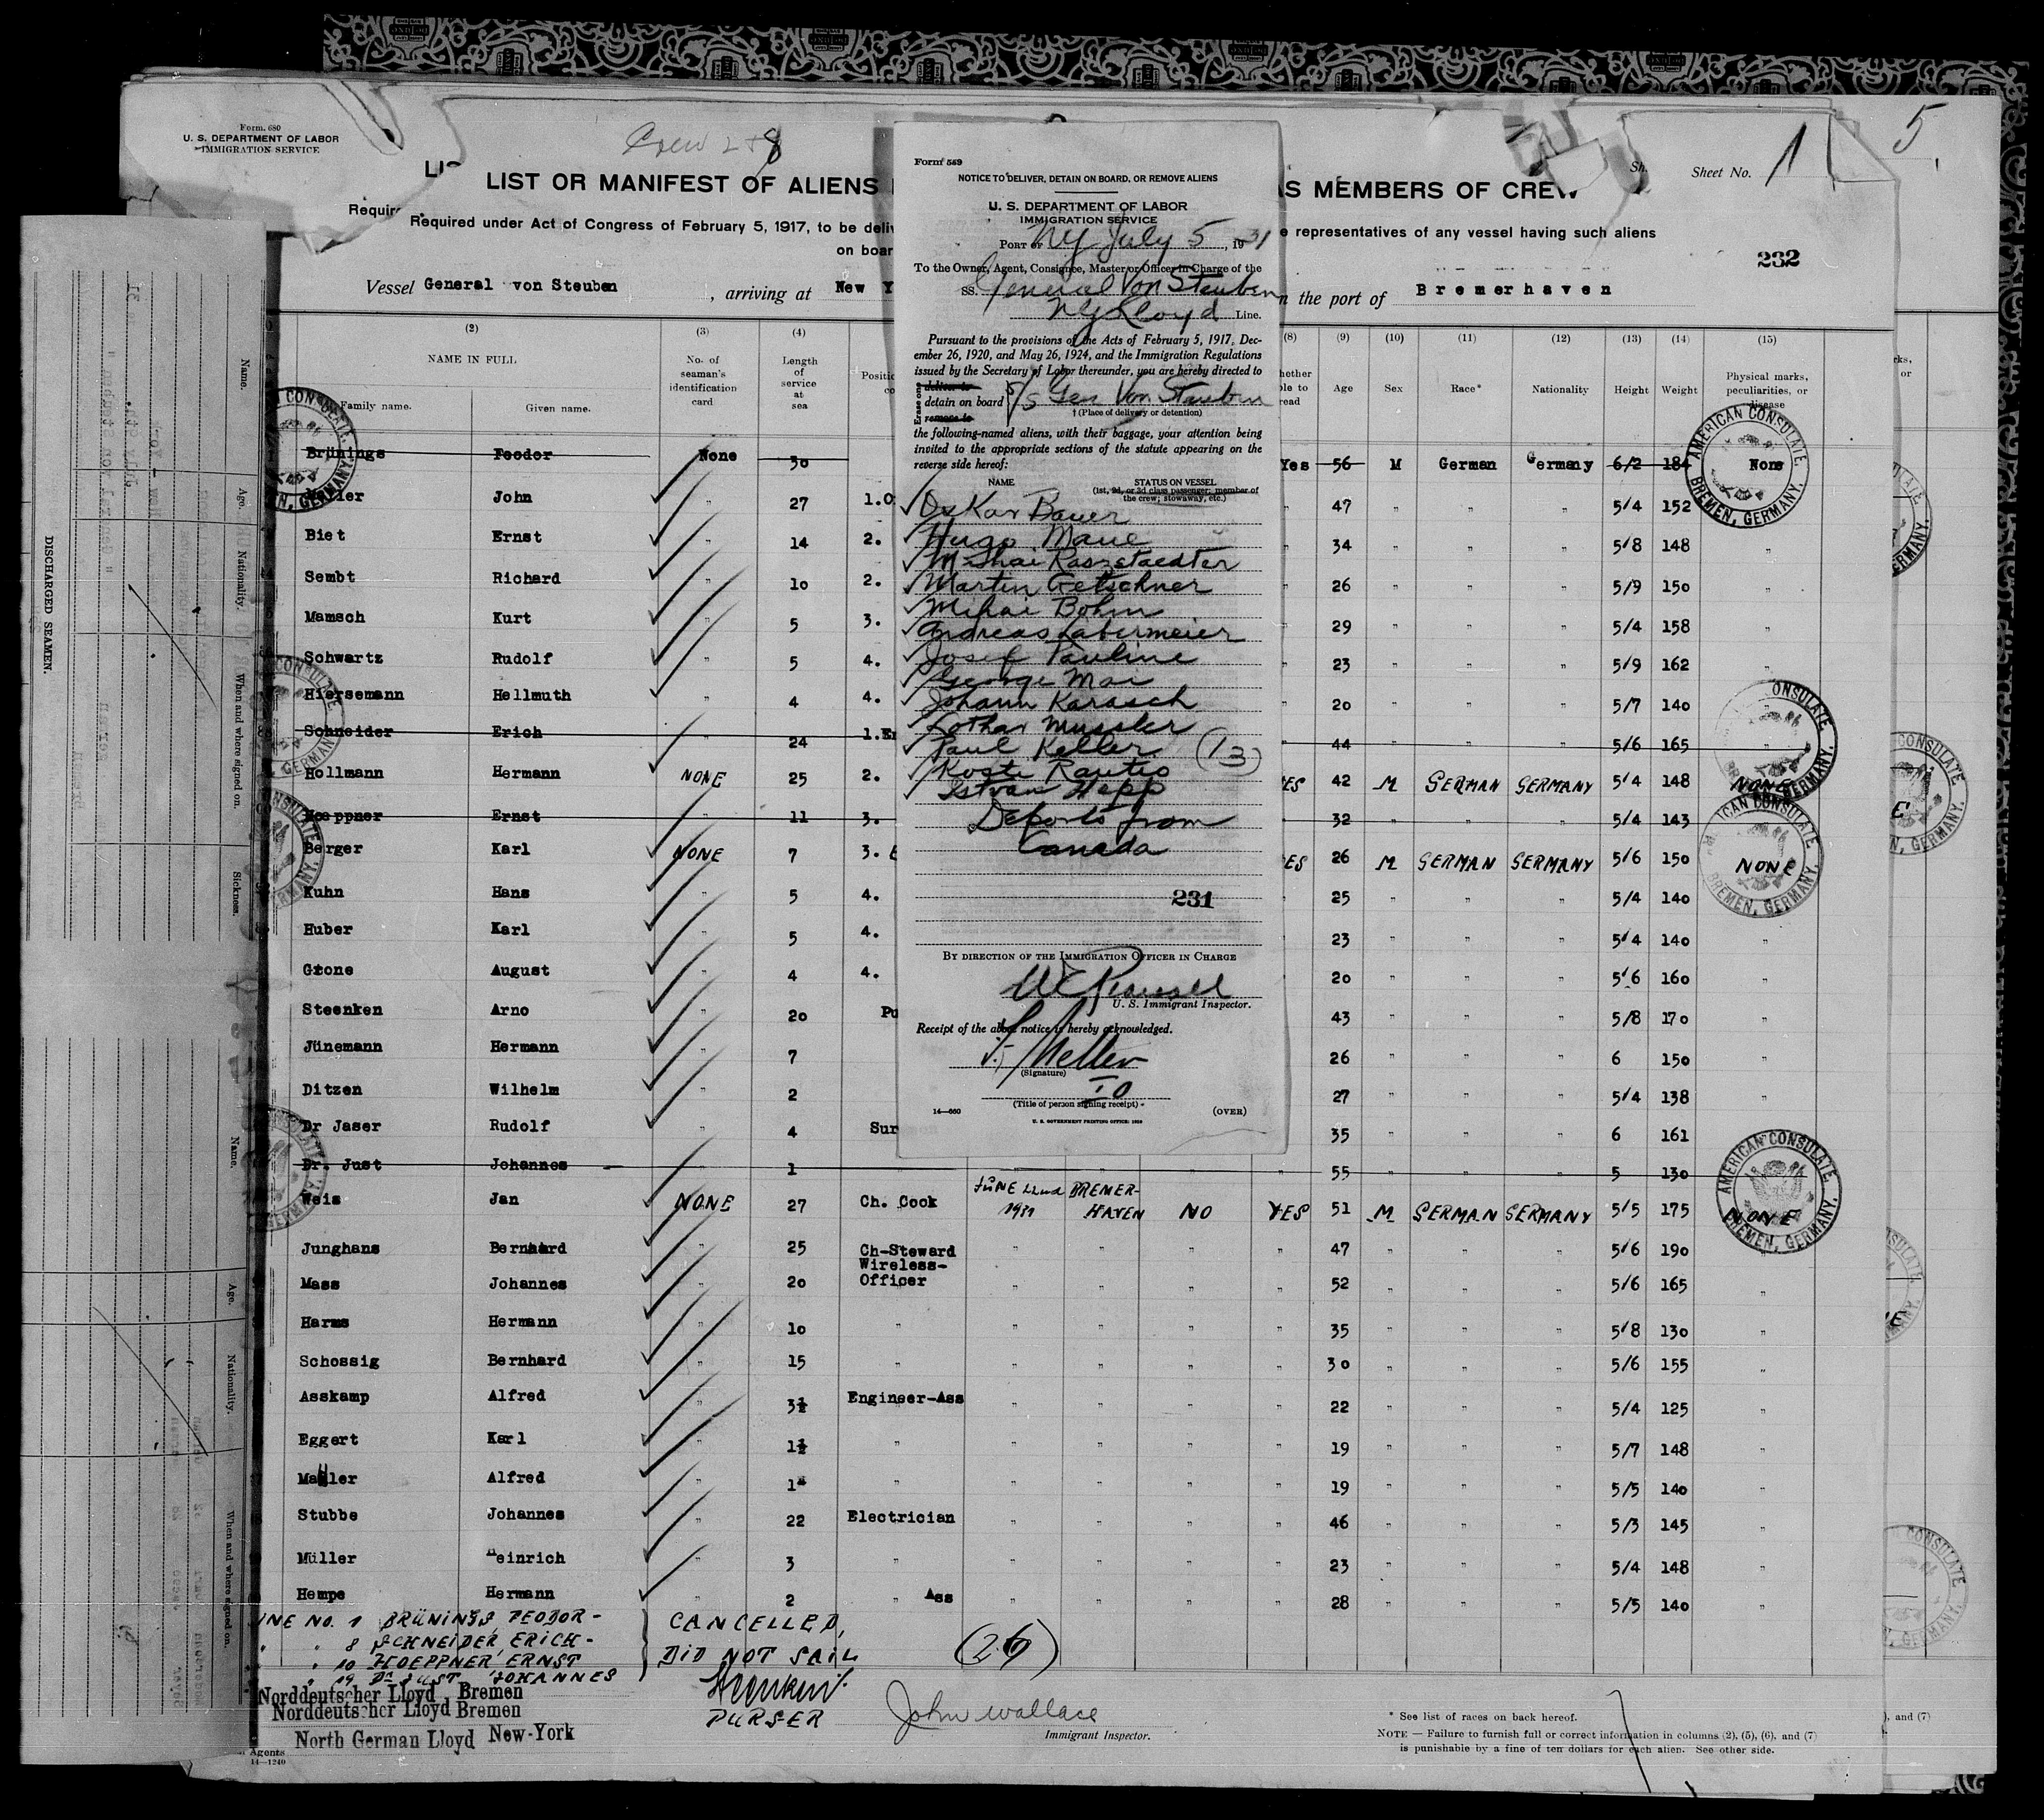 Form 680
U. S. DEPARTMENT OF LABOR
IMMIGRATION SERVICE
Crew
5
Sheet No. 1
LIST OR MANIFEST OF ALIENS
AS MEMBERS OF CREW
Required under Act of Congress of February 5, 1917, to be
representatives of any vessel having such aliens
on
232
Vessel General von Steuben , arriving at New
the port of Bremerhaven
Form 559
NOTICE TO DELIVER, DETAIN ON BOARD, OR REMOVE ALIENS
U. S. DEPARTMENT OF LABOR
IMMIGRATION SERVICE
PORT OF NY July 5, 1931
To the Owner, Agent, Consignee, Master or Officer in Charge of the
SS. General Von Steuben
NG Lloyd Line.
Pursuant to the provisions of the Acts of February 5, 1917, Dec-
ember 26, 1920, and May 26, 1924, and the Immigration Regulations
issued by the Secretary of Labor thereunder, you are hereby directed to
Erase one
deliver to
detain on board S/S Gen Von Steuben
remove to
† (Place of delivery or detention)
the following-named aliens, with their baggage, your attention being
invited to the appropriate sections of the statute appearing on the
reverse side hereof:
NAME STATUS ON VESSEL
(1st, 2d, or 3d class passenger; member of
the crew; stowaway, etc.)
Oskar Bauer
Hugo Maue
Martin Getschner
Mihai Bohm
Andreas Labermeier
Josef Pauline
George Mai
Johann Karasch
Lothar Mussler
Paul Keller (13)
Kosti Rautio
Istvan Hepp
Deports from
Canada
231
BY DIRECTION OF THE IMMIGRATION OFFICER IN CHARGE
U. S. Immigrant Inspector.
Receipt of the above notice is hereby acknowledged.
(Signature)
(Title of person signing receipt)
14—660 (OVER)
U. S. GOVERNMENT PRINTING OFFICE: 1929
(2) (3) (4) (8) (9) (10) (11) (12) (13) (14) (15)
NAME IN FULL
Family name. Given name.
No. of seaman's identification card
Length of service at sea
Age Sex Race* Nationality Height Weight
Physical marks, peculiarities, or disease
Brünings Feodor None 30 Yes 56 M German Germany 6/2 184 None
John " 27 1.O " 47 " " " 5/4 152
Biet Ernst " 14 2. " 34 " " " 5/8 148 "
Sembt Richard " 10 2. " 26 " " " 5/9 150 "
Mamsch Kurt " 5 3. " 29 " " " 5/4 158 "
Schwartz Rudolf " 5 4. " 23 " " " 5/9 162 "
Hiersemann Hellmuth " 4 4. " 20 " " " 5/7 140
Schneider Erich " 24 1.En 44 " " " 5/6 165 "
Hollmann Hermann NONE 25 2. YES 42 M GERMAN GERMANY 5/4 148 NONE
Hoeppner Ernst " 11 3. 32 " " " 5/4 143
Berger Karl NONE 7 3. YES 26 M GERMAN GERMANY 5/6 150 NONE
Kuhn Hans " 5 4. " 25 " " " 5/4 140
Huber Karl " 5 4. " 23 " " " 5/4 140 "
Grone August " 4 4. " 20 " " " 5/6 160 "
Steenken Arno " 20 Pu " 43 " " " 5/8 170 "
Jünemann Hermann " 7 " 26 " " " 6 150 "
Ditzen Wilhelm " 2 " 27 " " " 5/4 138 "
Dr Jaser Rudolf " 4 Sur " 35 " " " 6 161 "
Dr. Just Johannes " 1 " " " " 55 " " " 5 130
Weis Jan NONE 27 Ch. Cook JUNE BREMERHAVEN NO YES 51 M GERMAN GERMANY 5/5 175 NONE
Junghans Bernhard " 25 Ch-Steward " " " " 47 " " " 5/6 190
Mass Johannes " 20 Wireless-Officer " " " " 52 " " " 5/6 165 "
Harms Hermann " 10 " " " " " 35 " " " 5/8 130 "
Schossig Bernhard " 15 " " " " " 30 " " " 5/6 155 "
Asskamp Alfred " 3½ Engineer-Ass " " " " 22 " " " 5/4 125 "
Eggert Karl " 1½ " " " " " 19 " " " 5/7 148 "
Alfred " 1 " " " " " 19 " " " 5/5 140 "
Stubbe Johannes " 22 Electrician " " " " 46 " " " 5/3 145 "
Müller Heinrich " 3 " " " " " 23 " " " 5/4 148 "
Hempe Hermann " 2 " Ass " " " " 28 " " " 5/5 140 "
LINE NO. 1 BRÜNINGS, FEODOR -
" " 8 SCHNEIDER, ERICH -
" " 10 HOEPPNER ERNST
" " 19 DR JUST JOHANNES
CANCELLED,
DID NOT SAIL
PURSER
(26)
Norddeutscher Lloyd Bremen
Norddeutscher Lloyd Bremen
North German Lloyd New-York
Agents
14—1240
John Wallace
Immigrant Inspector.
* See list of races on back hereof.
NOTE — Failure to furnish full or correct information in columns (2), (5), (6), and (7)
is punishable by a fine of ten dollars for each alien. See other side.
, and (7)
AMERICAN CONSULATE
BREMEN, GERMANY.
DISCHARGED SEAMEN.
Name. Age. Nationality. When and where signed on. Sickness.
Name. Age. Nationality. When and where signed on.